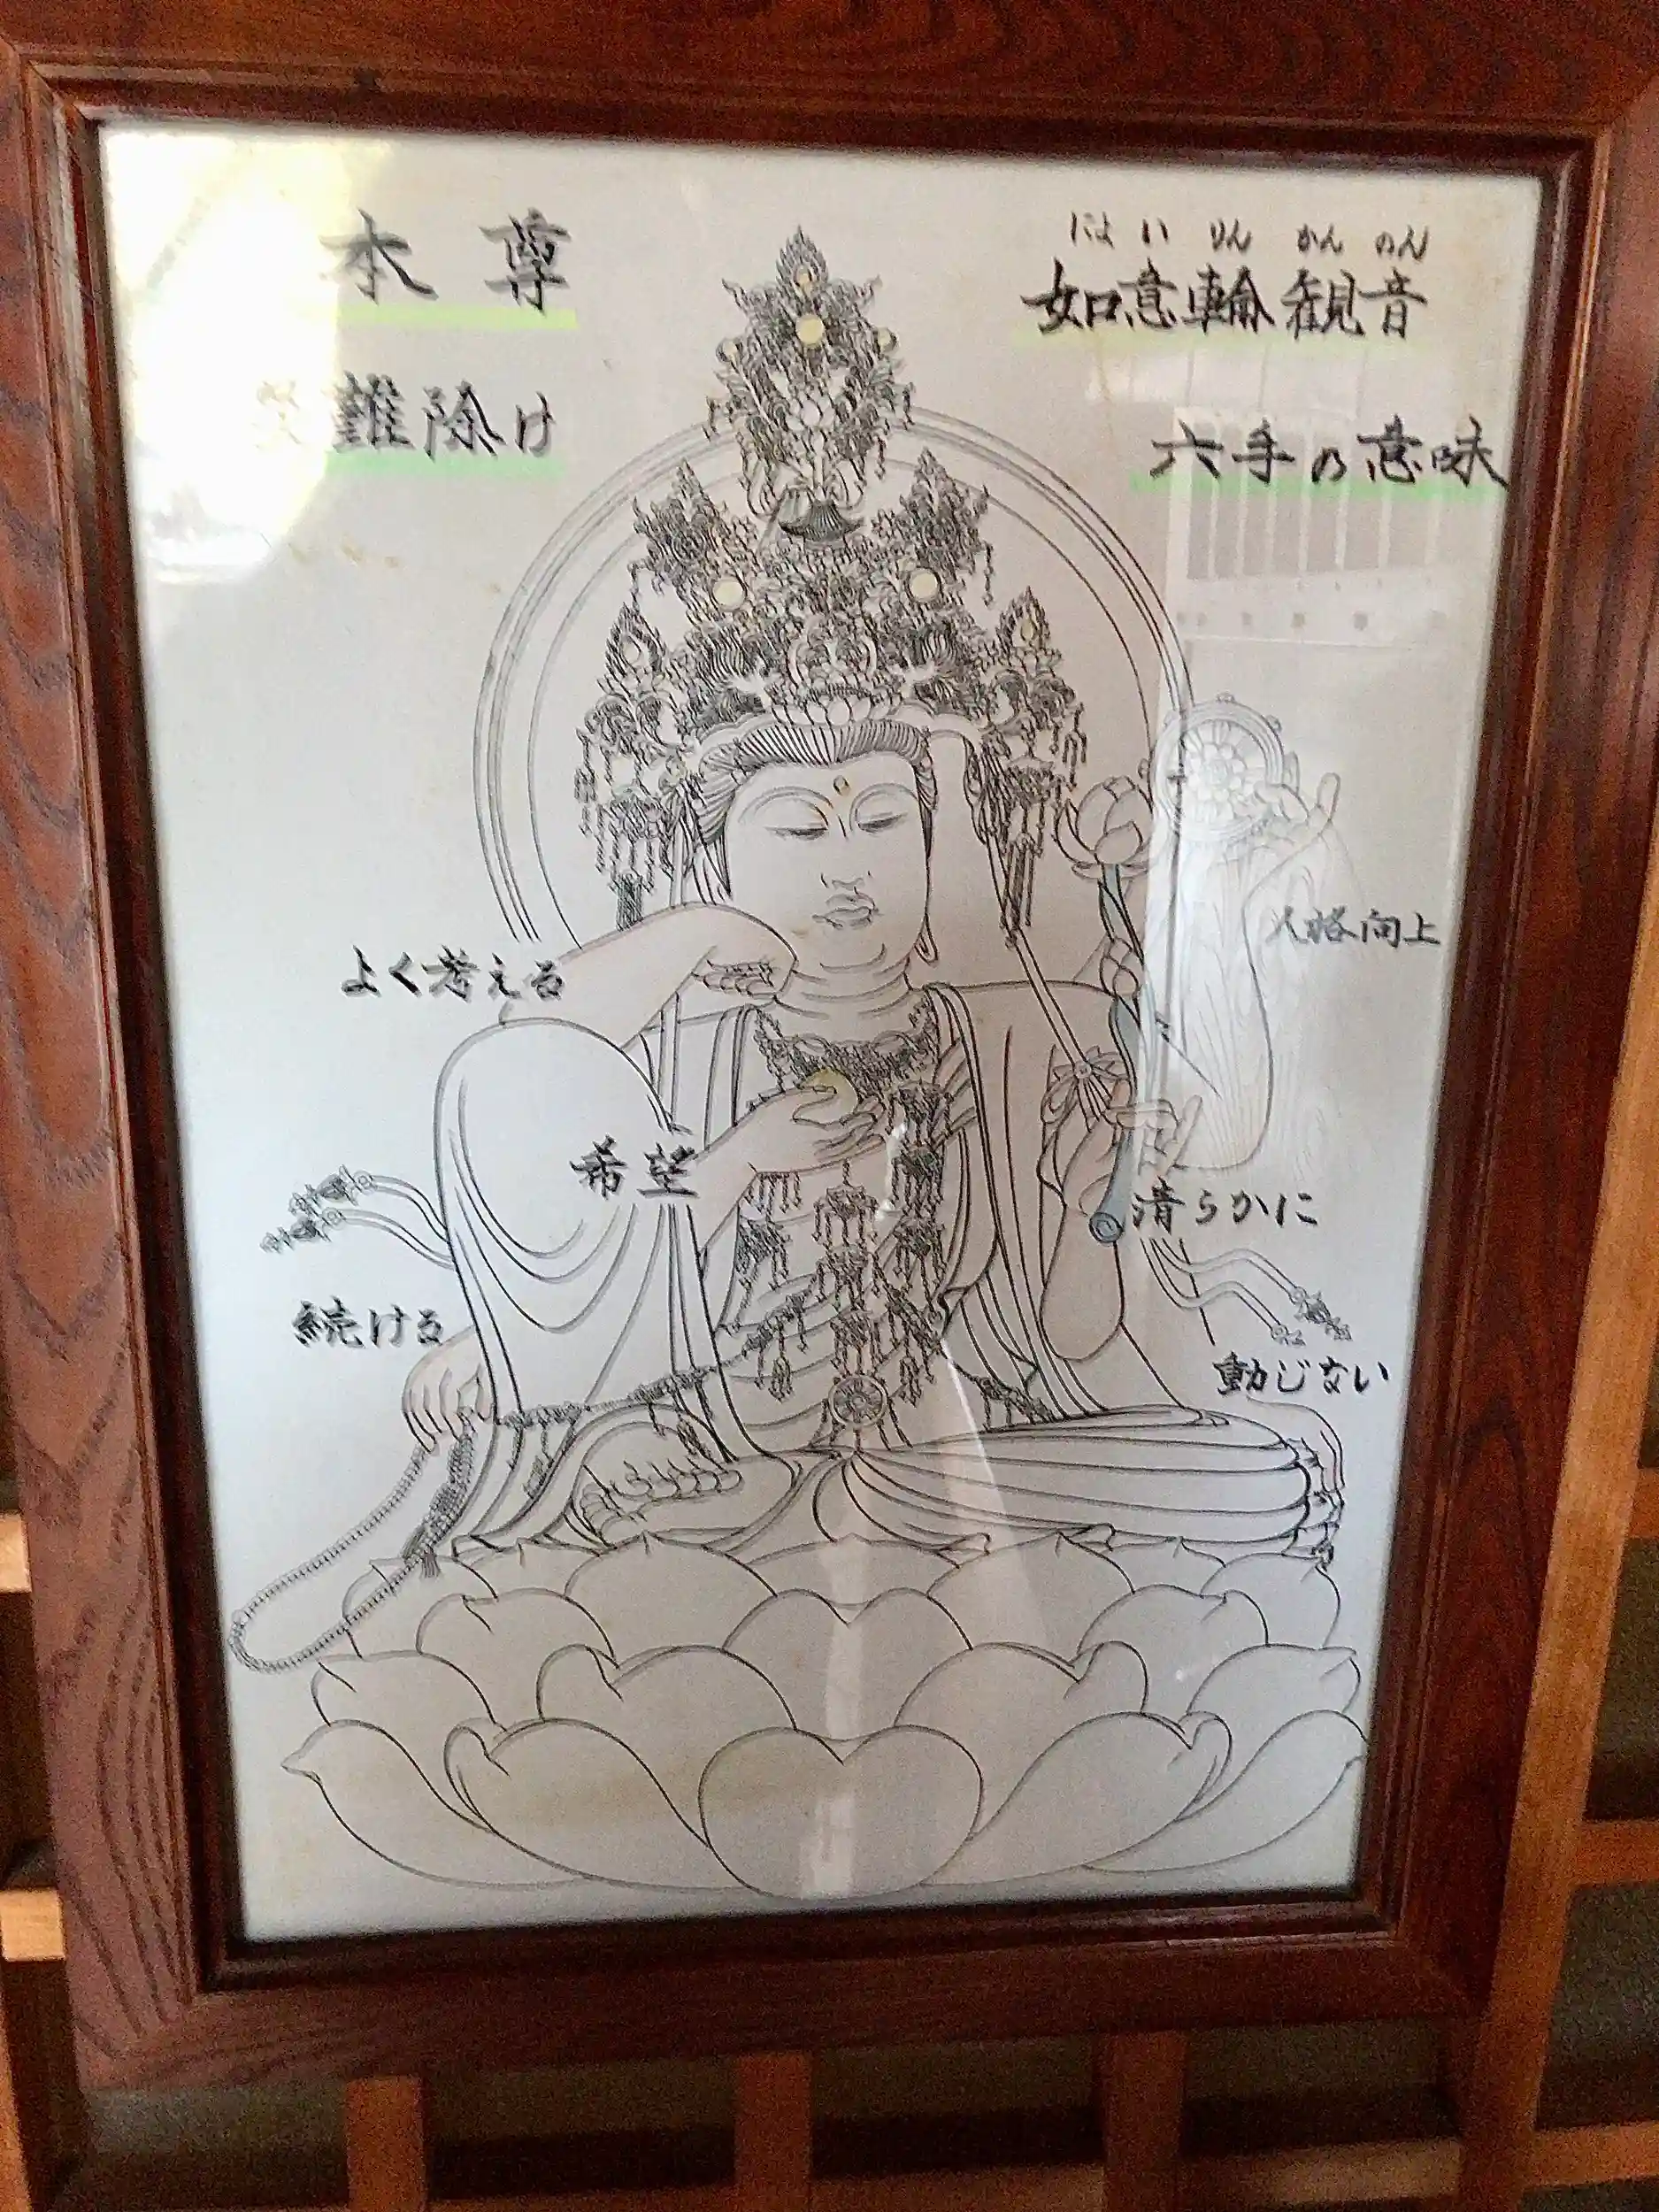 にょ い りん かん のん
如意輪観音
六手の意味
本尊
難除け
人格向上
よく考える
希望
清らかに
続ける
動じない